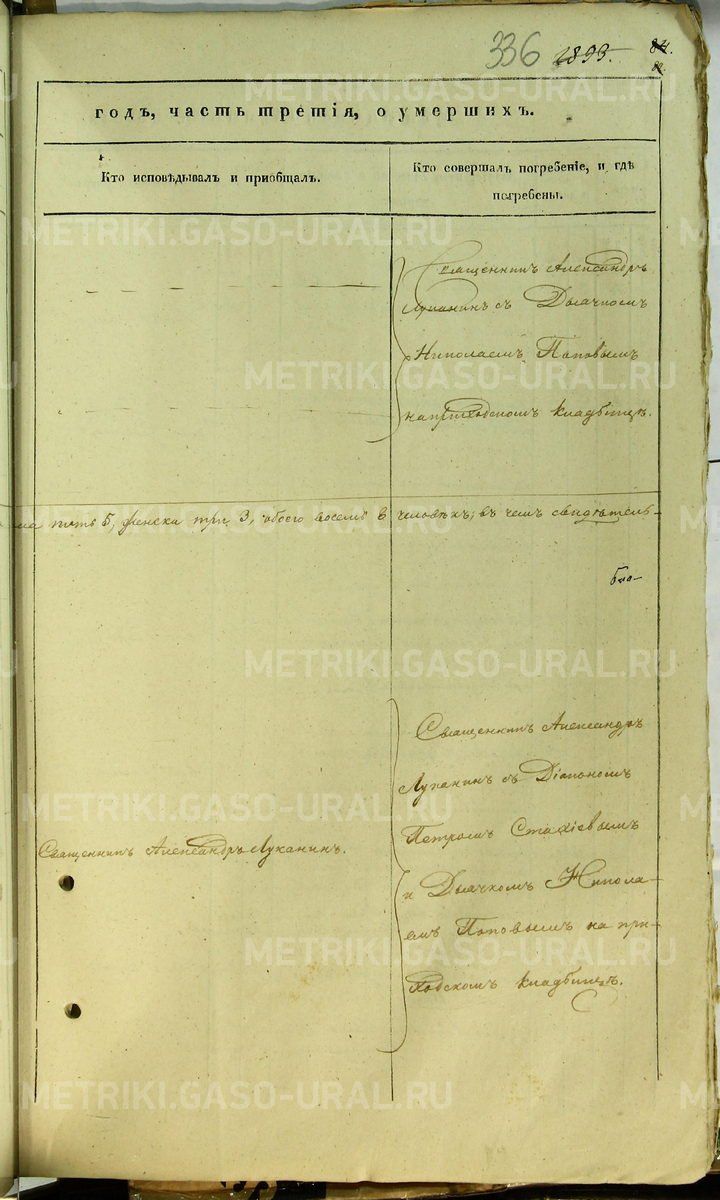 336 1893. 84.
годъ, часть третія, о умершихъ.
Кто исповѣдывалъ и пріобщалъ.
Кто совершалъ погребеніе, и гдѣ
погребены.
Священникъ Александръ
Луканинъ съ Дьячкомъ
Николаемъ Поповымъ
на приходскомъ кладбищѣ.
на пять 5, женска три 3, обоего восемь 8 человѣкъ; въ чемъ свидѣтель-
Священникъ Александръ
Луканинъ съ Діакономъ
Петромъ Стахіевымъ
Священникъ Александръ Луканинъ.
и Дьячкомъ Никола-
емъ Поповымъ на при-
ходскомъ кладбищѣ.
METRIKI.GASO-URAL.RU